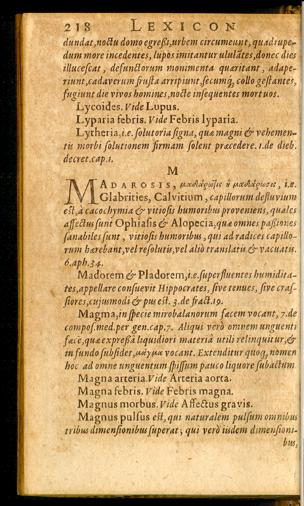 218 LEXICON
dundat, noctu domo egreßi, urbem circumeunt, quadrupe-
dum more incedentes, lupos imitantur ululātes, donec dies
illucescat, defunctorum monimenta quæritant, adape-
riunt, cadaverum frusta arripiunt, secumq́; collo gestantes,
fugiunt die vivos homines, nocte insequentes mortuos.
Lycoides. Vide Lupus.
Lyparia febris. Vide Febris lyparia.
Lytheria, i.e. solutoria signa, quæ magni & vehemen-
tis morbi solutionem firmam solent præcedere. 1. de dieb.
decret. cap. 1.
M
MADAROSIS, μαδάρωσις, i.e.
Glabrities, Calvitium, capillorum defluvium
est, à cacochymia & vitiosis humoribus proveniens, quales
affectus sunt Ophiasis & Alopecia, quæ omnes paßiones
sanabiles sunt, vitiosis humoribus, qui ad radices capillo-
rum hærebant, vel resolutis, vel aliò translatis & vacuatis.
6. aph. 34.
Madorem & Pladorem, i.e. superfluentes humidita-
tes, appellare consuevit Hippocrates, sive tenues, sive cras-
siores, cujusmodi & pus est. 3. de fract. 19.
Magma, in specie mirobalanorum fæcem vocant, 7. de
compos. med. per gen. cap. 7. Aliqui verò omnem unguenti
fæcē, quæ expreßâ liquidiori materiâ utili relinquitur, &
in fundo subsidet, μάγμα vocant. Extenditur quoq; nomen
hoc ad omne unguentum spissum pauco liquore subactum.
Magna arteria. Vide Arteria aorta.
Magna febris. Vide Febris magna.
Magnus morbus. Vide Affectus gravis.
Magnus pulsus est, qui naturalem pulsum omnibus
tribus dimensionibus superat; qui verò iisdem dimensioni-
bus,